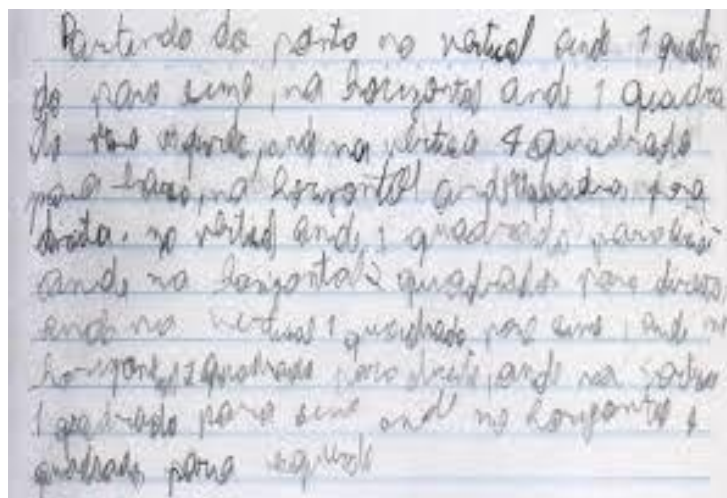 Partendo do ponto no vertical ande 1 quadra
do para cima, na horizontal ande 1 quadra
do para esquerda, ande na vertical 4 quadrado
para baixo, na horizontal ande quadrados para
direita, no vertical ande 1 quadrado para
ande na horizontal quadrados para direita
ande na vertical 1 quadrado para cima, ande
horizontal quadrado para direita, ande na
1 quadrado para cima ande no horizontal
quadrado para esquerda